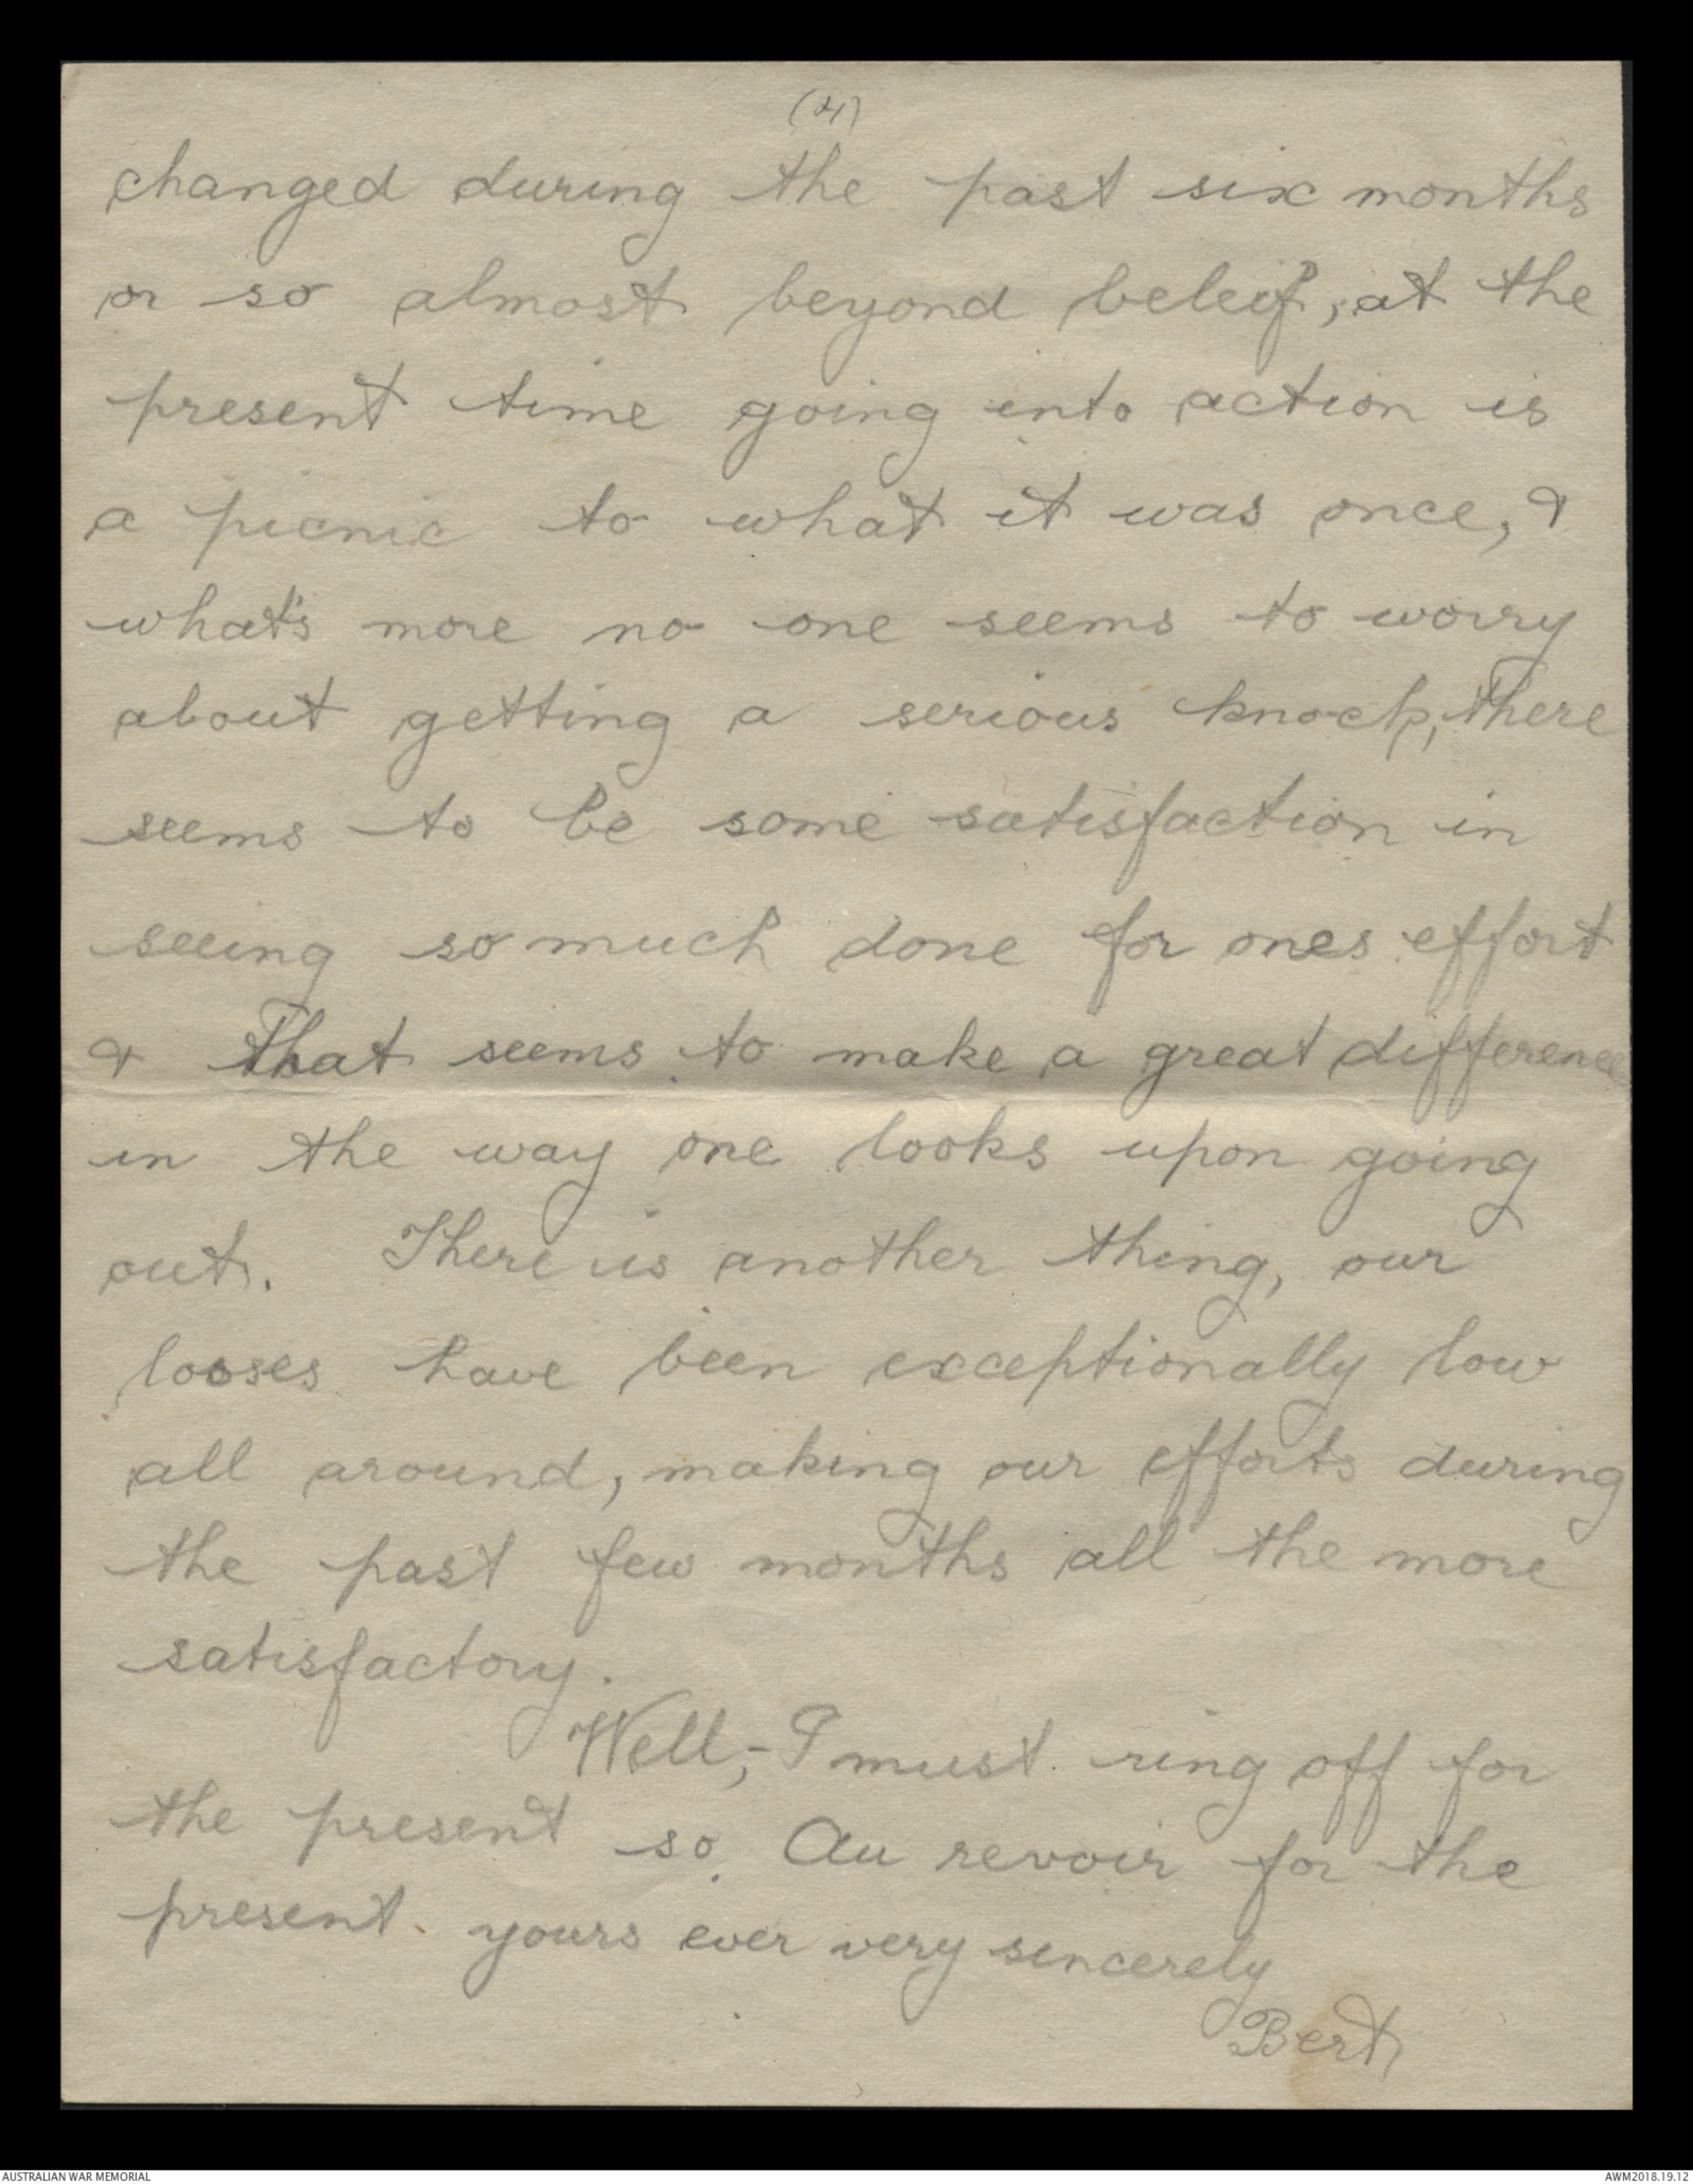 (4)
changed during the past six months
or so almost beyond beleif, at the
present time going into action is
a picnic to what it was once, &
what's more no one seems to worry
about getting a serious knock, there
seems to be some satisfaction in
seeing so much done for ones effort
& that seems to make a great difference
in the way one looks upon going
out. There is another thing, our
looses have been exceptionally low
all around, making our efforts during
the past few months all the more
satisfactory.
Well,- I must ring off for
the present so. Au revoir for the
present. yours ever very sincerely
Bert
AUSTRALIAN WAR MEMORIAL
AWM2018.19.12